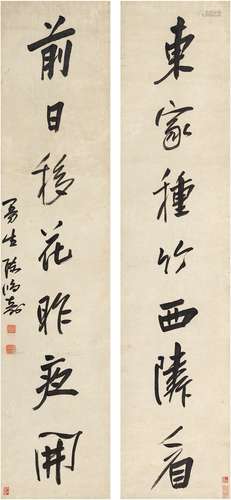 東家種竹西隣看
前日移花昨夜開
曼生陳鴻壽